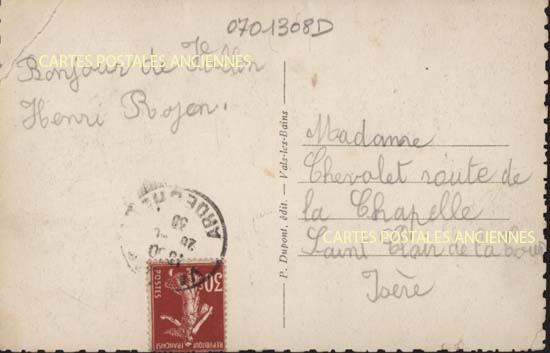 0701308D
CARTES POSTALES ANCIENNES
Bonjour de
Henri Rojon.
P. Dupont, édit. - Vals-les-Bains
Madame
Chevalet route de
la Chapelle
Saint Clair de la
CARTES POSTALES ANCIENNES
Isère
ARDECHE
38
30c
POSTES
REPUBLIQUE FRANÇAISE